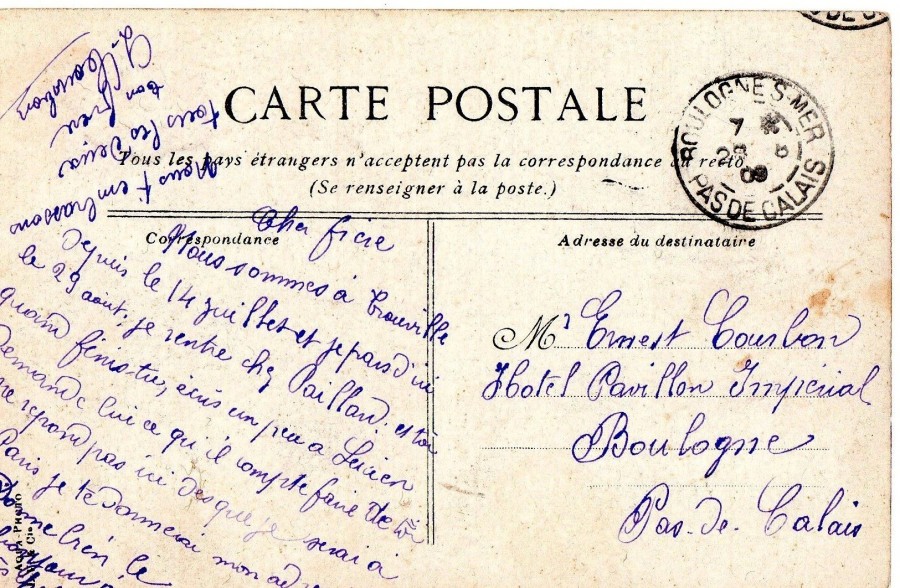 CARTE POSTALE
Tous les pays étrangers n'acceptent pas la correspondance au recto
(Se renseigner à la poste.)
Correspondance
Adresse du destinataire
BOULOGNE S-MER
7
25 8
09
PAS DE CALAIS
Cher frère
Nous sommes à Trouville
depuis le 14 juillet et je pars d'ici
le 29 aout, je rentre chez Paillard. et toi
quand finis-tu, écris un peu a Lucien
Demande lui ce qu'il compte faire de toi
ne repond pas ici des que je serai a
Paris je te donnerai mon
bien le
Nous t'embrassons
tous les deux
ton frere
Courbon
Mr Ernest Courbon
Hotel Pavillon Impérial
Boulogne
Pas-de-Calais